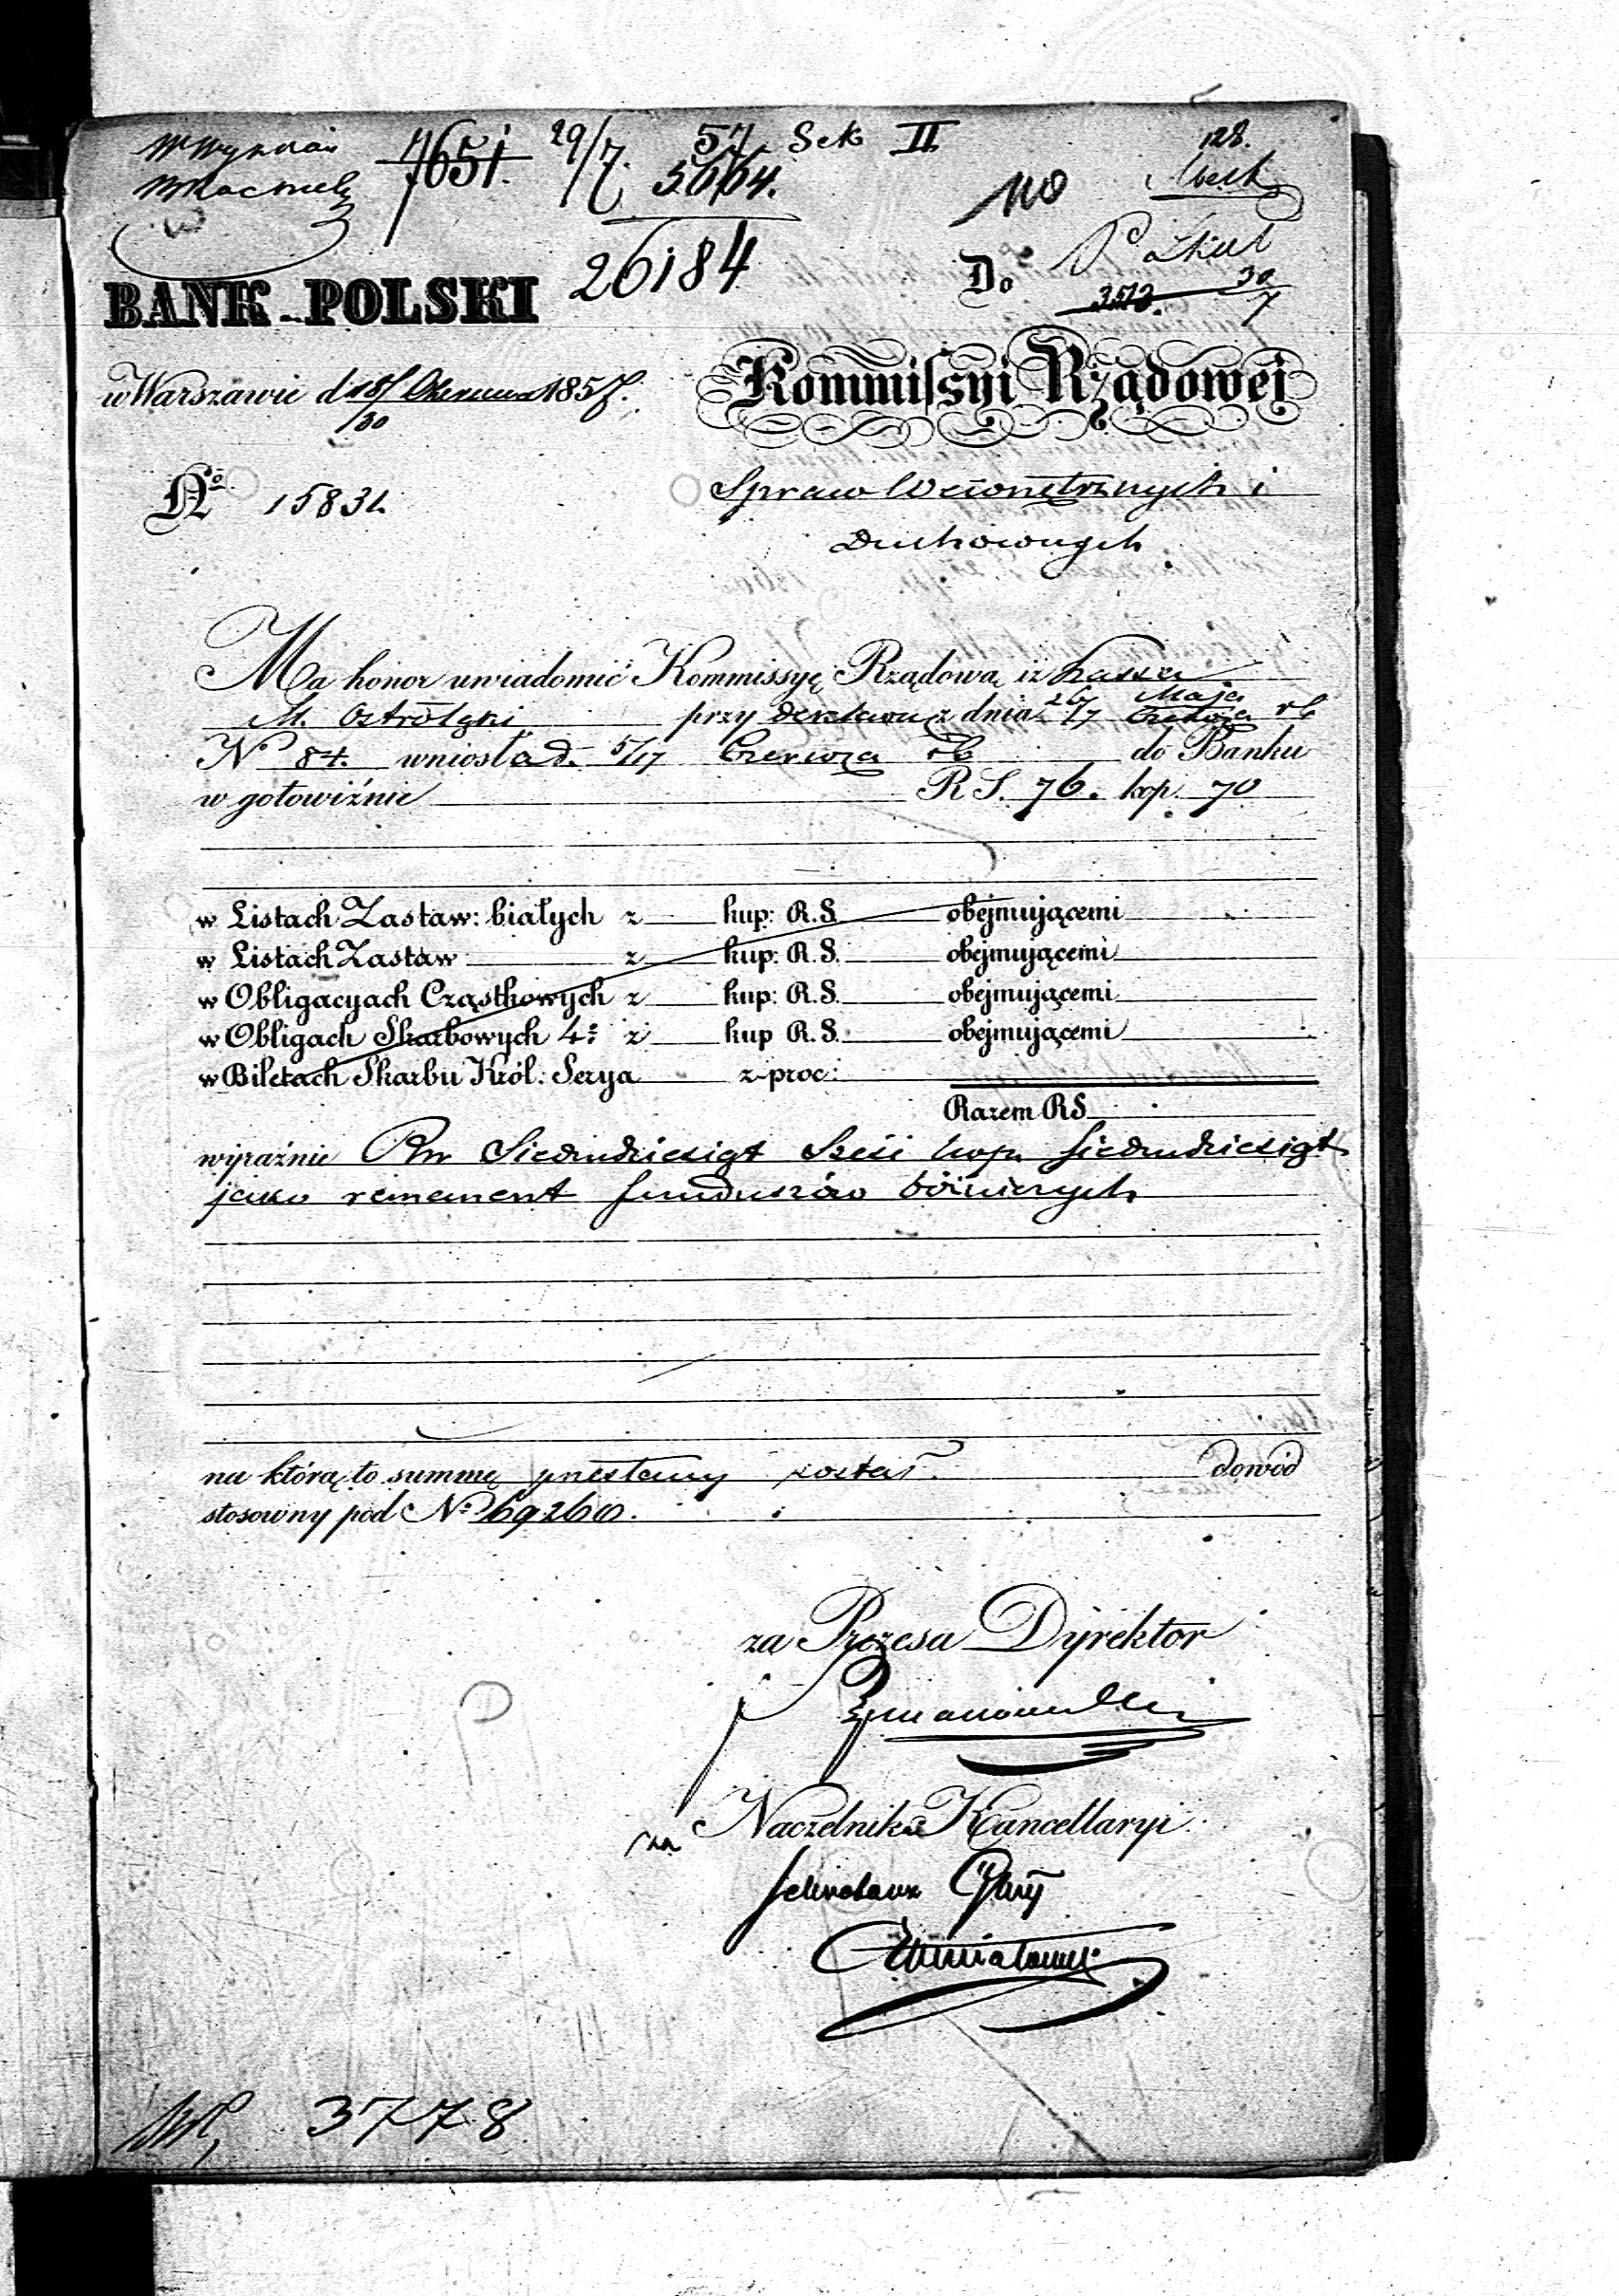 7651. 29/7. 57 Sek II 128.
5664. 110
26184 Do
BANK POLSKI 30/7
w Warszawie d 18/30 Czerwca 1857.
Kommissyi Rządowej
Spraw Wewnętrznych i
Duchownych
No 15831.
Ma honor uwiadomić Kommissyę Rządową iż kassa
M. Ostrołęki przy deklaracyi z dnia 26/7 Maja Czerwca rb
No 84. wniosła d. 5/17 Czerwca rb do Banku
w gotowiźnie RS. 76. kop. 70
w Listach Zastaw: białych z kup: R.S. obejmującemi
w Listach Zastaw z kup: R.S. obejmującemi
w Obligacyach Cząstkowych z kup: R.S. obejmującemi
w Obligach Skarbowych 4: z kup R.S. obejmującemi
w Biletach Skarbu Król: Serya z proc:
Razem RS
wyraźnie Rsr Siedmdziesiąt Sześć kop. siedmdziesiąt
jako remanent funduszów bóżniczych
na którą to summę przesłany został dowód
stosowny pod No 69260.
za Prezesa Dyrektor
za Naczelnika Kancellaryi
Sekretarz
3778